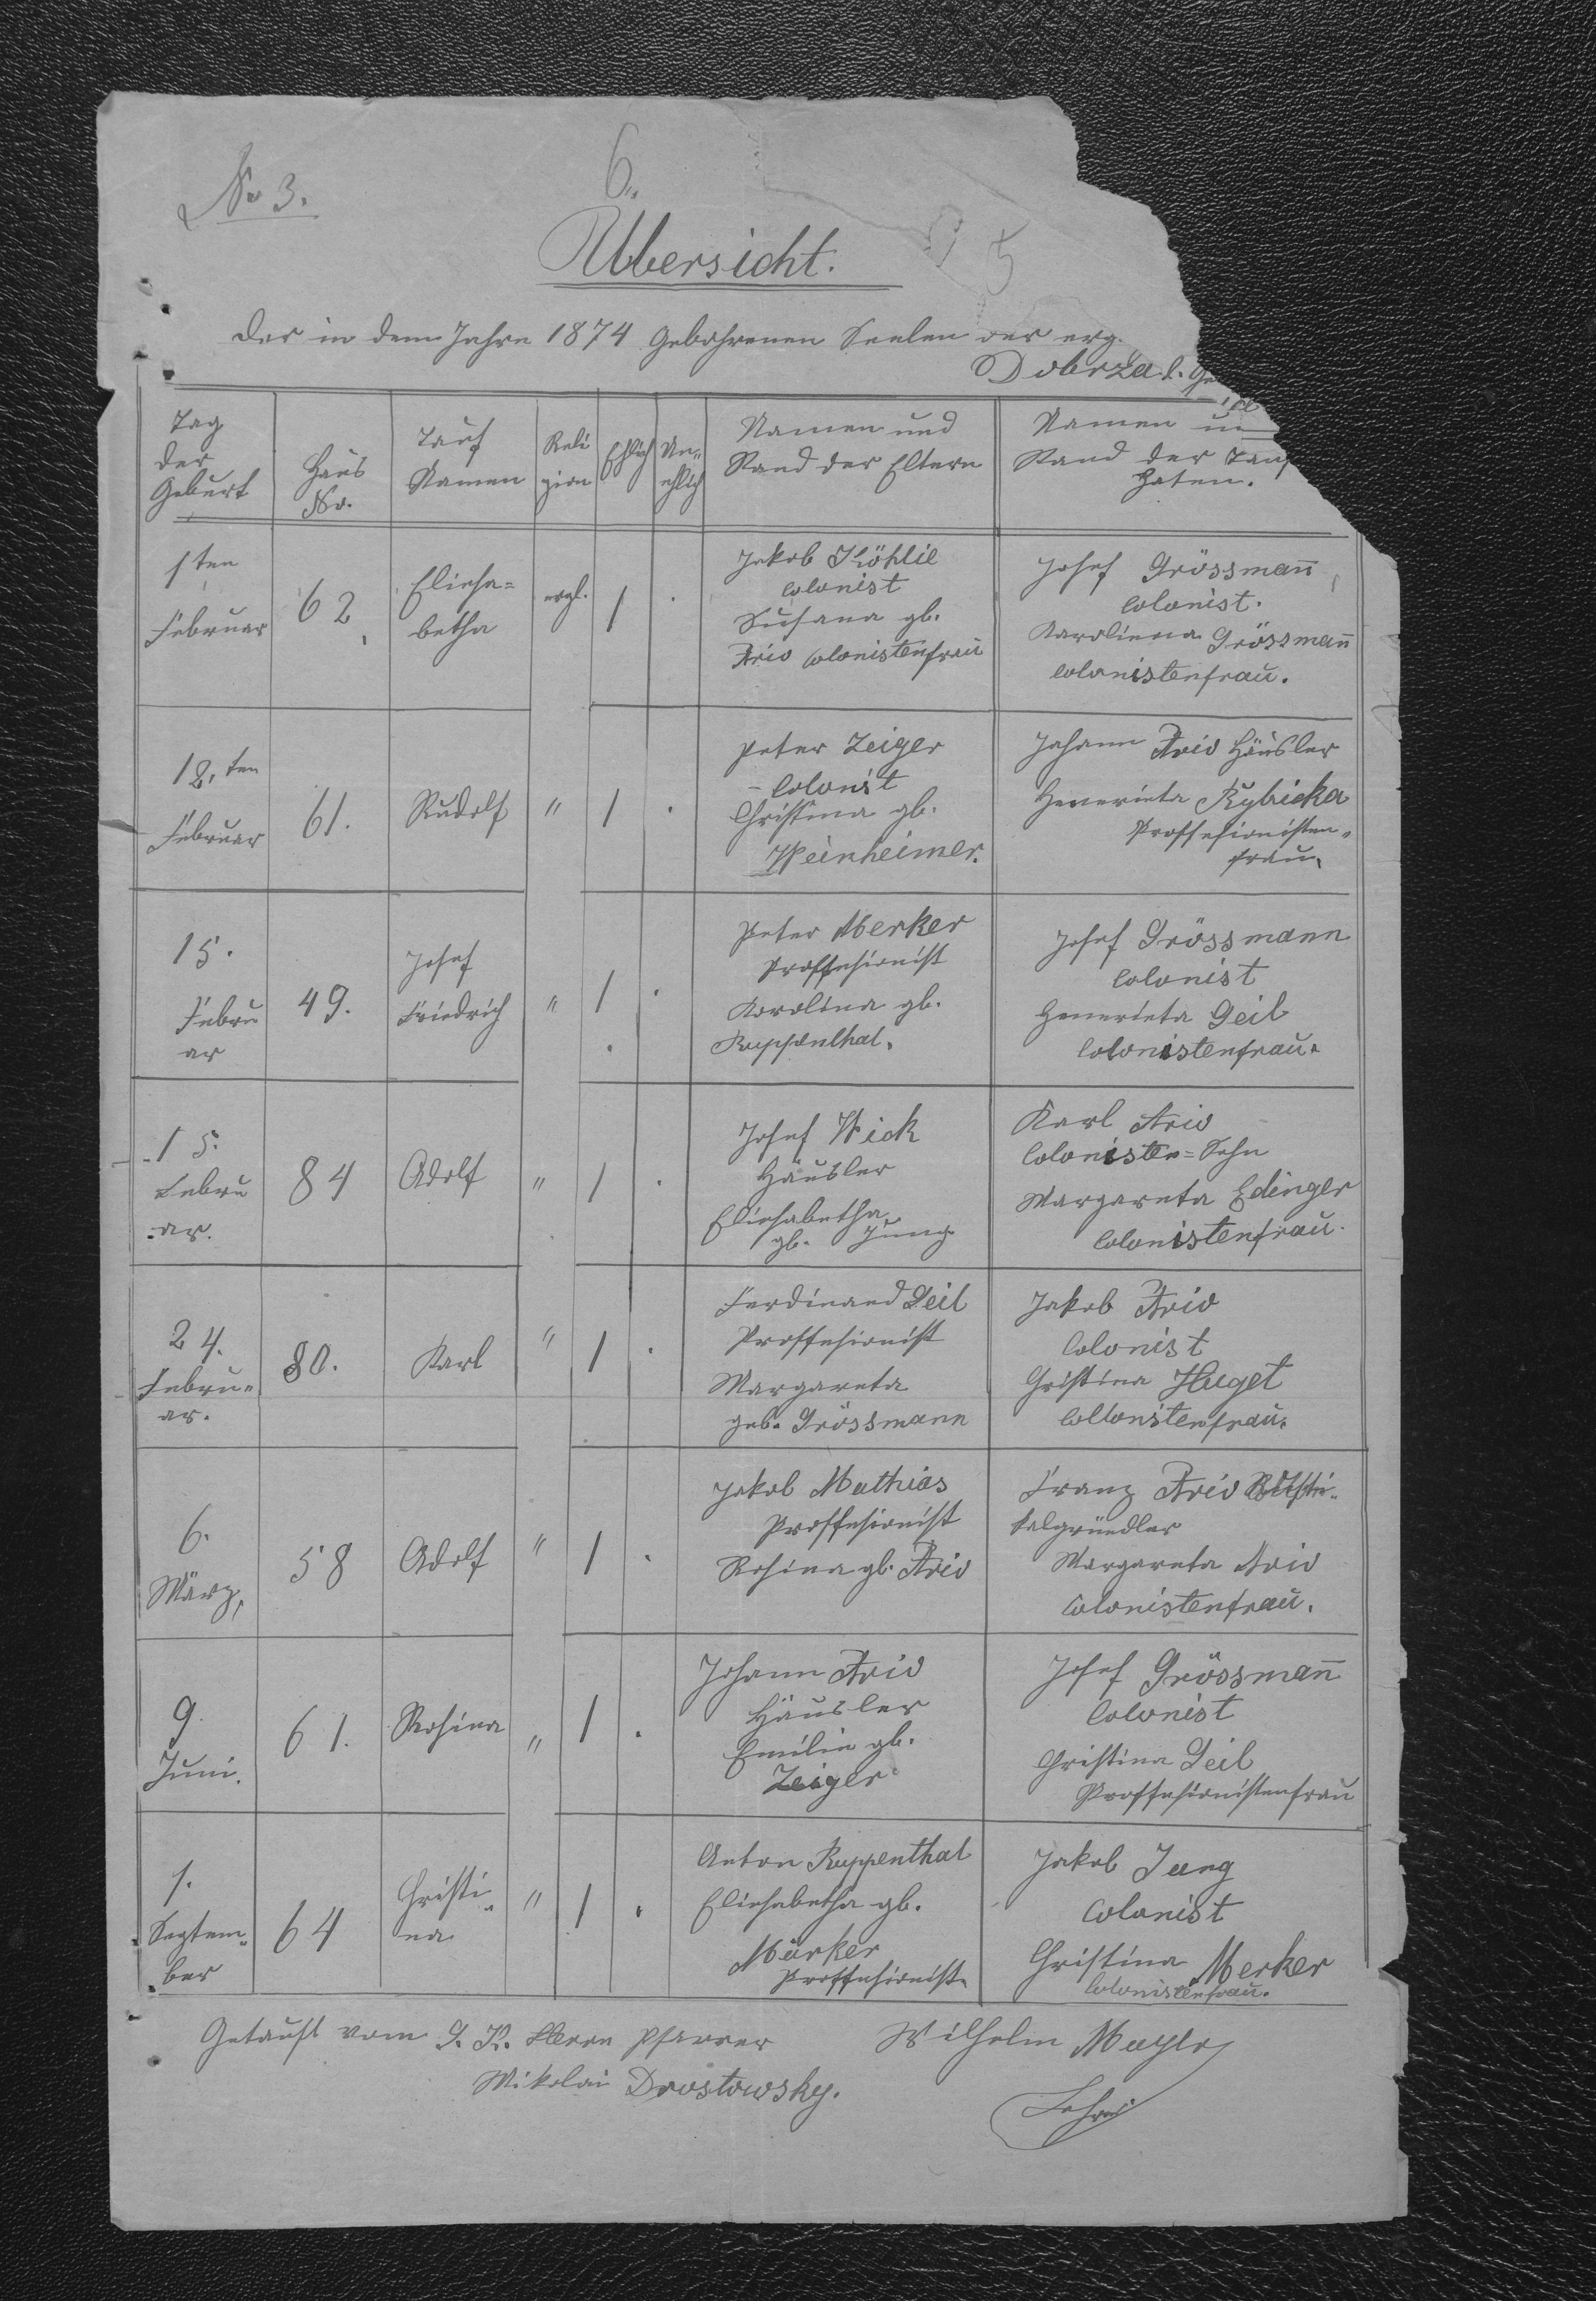 No 3.
6.
5
Übersicht.
der in dem Jahre 1874 gebohrenen Seelen der erg.
Dobrza
Tag der Geburt
Haus No.
Tauf Namen
Religion
Ehlich
Unehlich
Namen und Stand der Eltern
Namen und Stand der Tauf
1ten Februar
62
Eliesa=
betha
evgl.
1
.
Jakob Köhlie
Colonist
Susana gb.
Friv Colonistenfrau
Josef Grössmann̄
Colonist.
Karoliena Grössmann̄
Colonistenfrau.
12.ten
Februar
61.
Rudolf
"
1
.
Peter Zeiger
Colonist
Christina gb.
Weinheimer.
Johann Friv Häusler
Henerieta Rybicka
Proffesionisten-
frau.
15.
Febru
ar
49.
Josef
Friedrich
"
1
.
Peter Merker
Proffesionist
Karolina gb.
Ruppenthal.
Josef Grössmann
Colonist
Henerieta Geil
Colonistenfrau.
15.
Febru
ar.
84
Adolf
"
1
.
Josef Wick
Häusler
Eliesabetha
gb. Jung
Karl Friv
Colonisten=Sohn
Margareta Edinger
Colonistenfrau.
24.
Febru-
ar.
80.
Karl
"
1
.
Ferdinand Geil
Proffesionist
Margareta
geb. Grössmann
Jakob Friv
Colonist
Christina Huget
Collonistenfrau.
6.
März,
58
Adolf
"
1
.
Jakob Mathias
Proffesionist
Rosina gb. Friv
Franz Friv
kalgründler
Margareta Friv
Colonistenfrau.
9.
Juni.
61.
Rosina
"
1
.
Johann Friv
Häusler
Emilie gb.
Zeiger
Josef Grössmann̄
Colonist
Christina Geil
Proffesionistenfrau
1.
Septem-
ber
64
Christi-
na
"
1
.
Anton Ruppenthal
Eliesabetha gb.
Märker
Proffesionist
Jakob Jung
Colonist
Christina Merker
Colonistenfrau.
Getauft vom G. K. Herrn Pfarrer
Mikolai Drostowsky.
Wilhelm Mayer
Lehrer